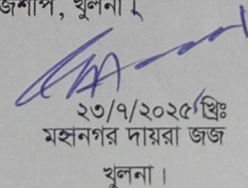 খুলনা।
২৩/৭/২০২৫ খ্রিঃ
মহানগর দায়রা জজ
খুলনা।